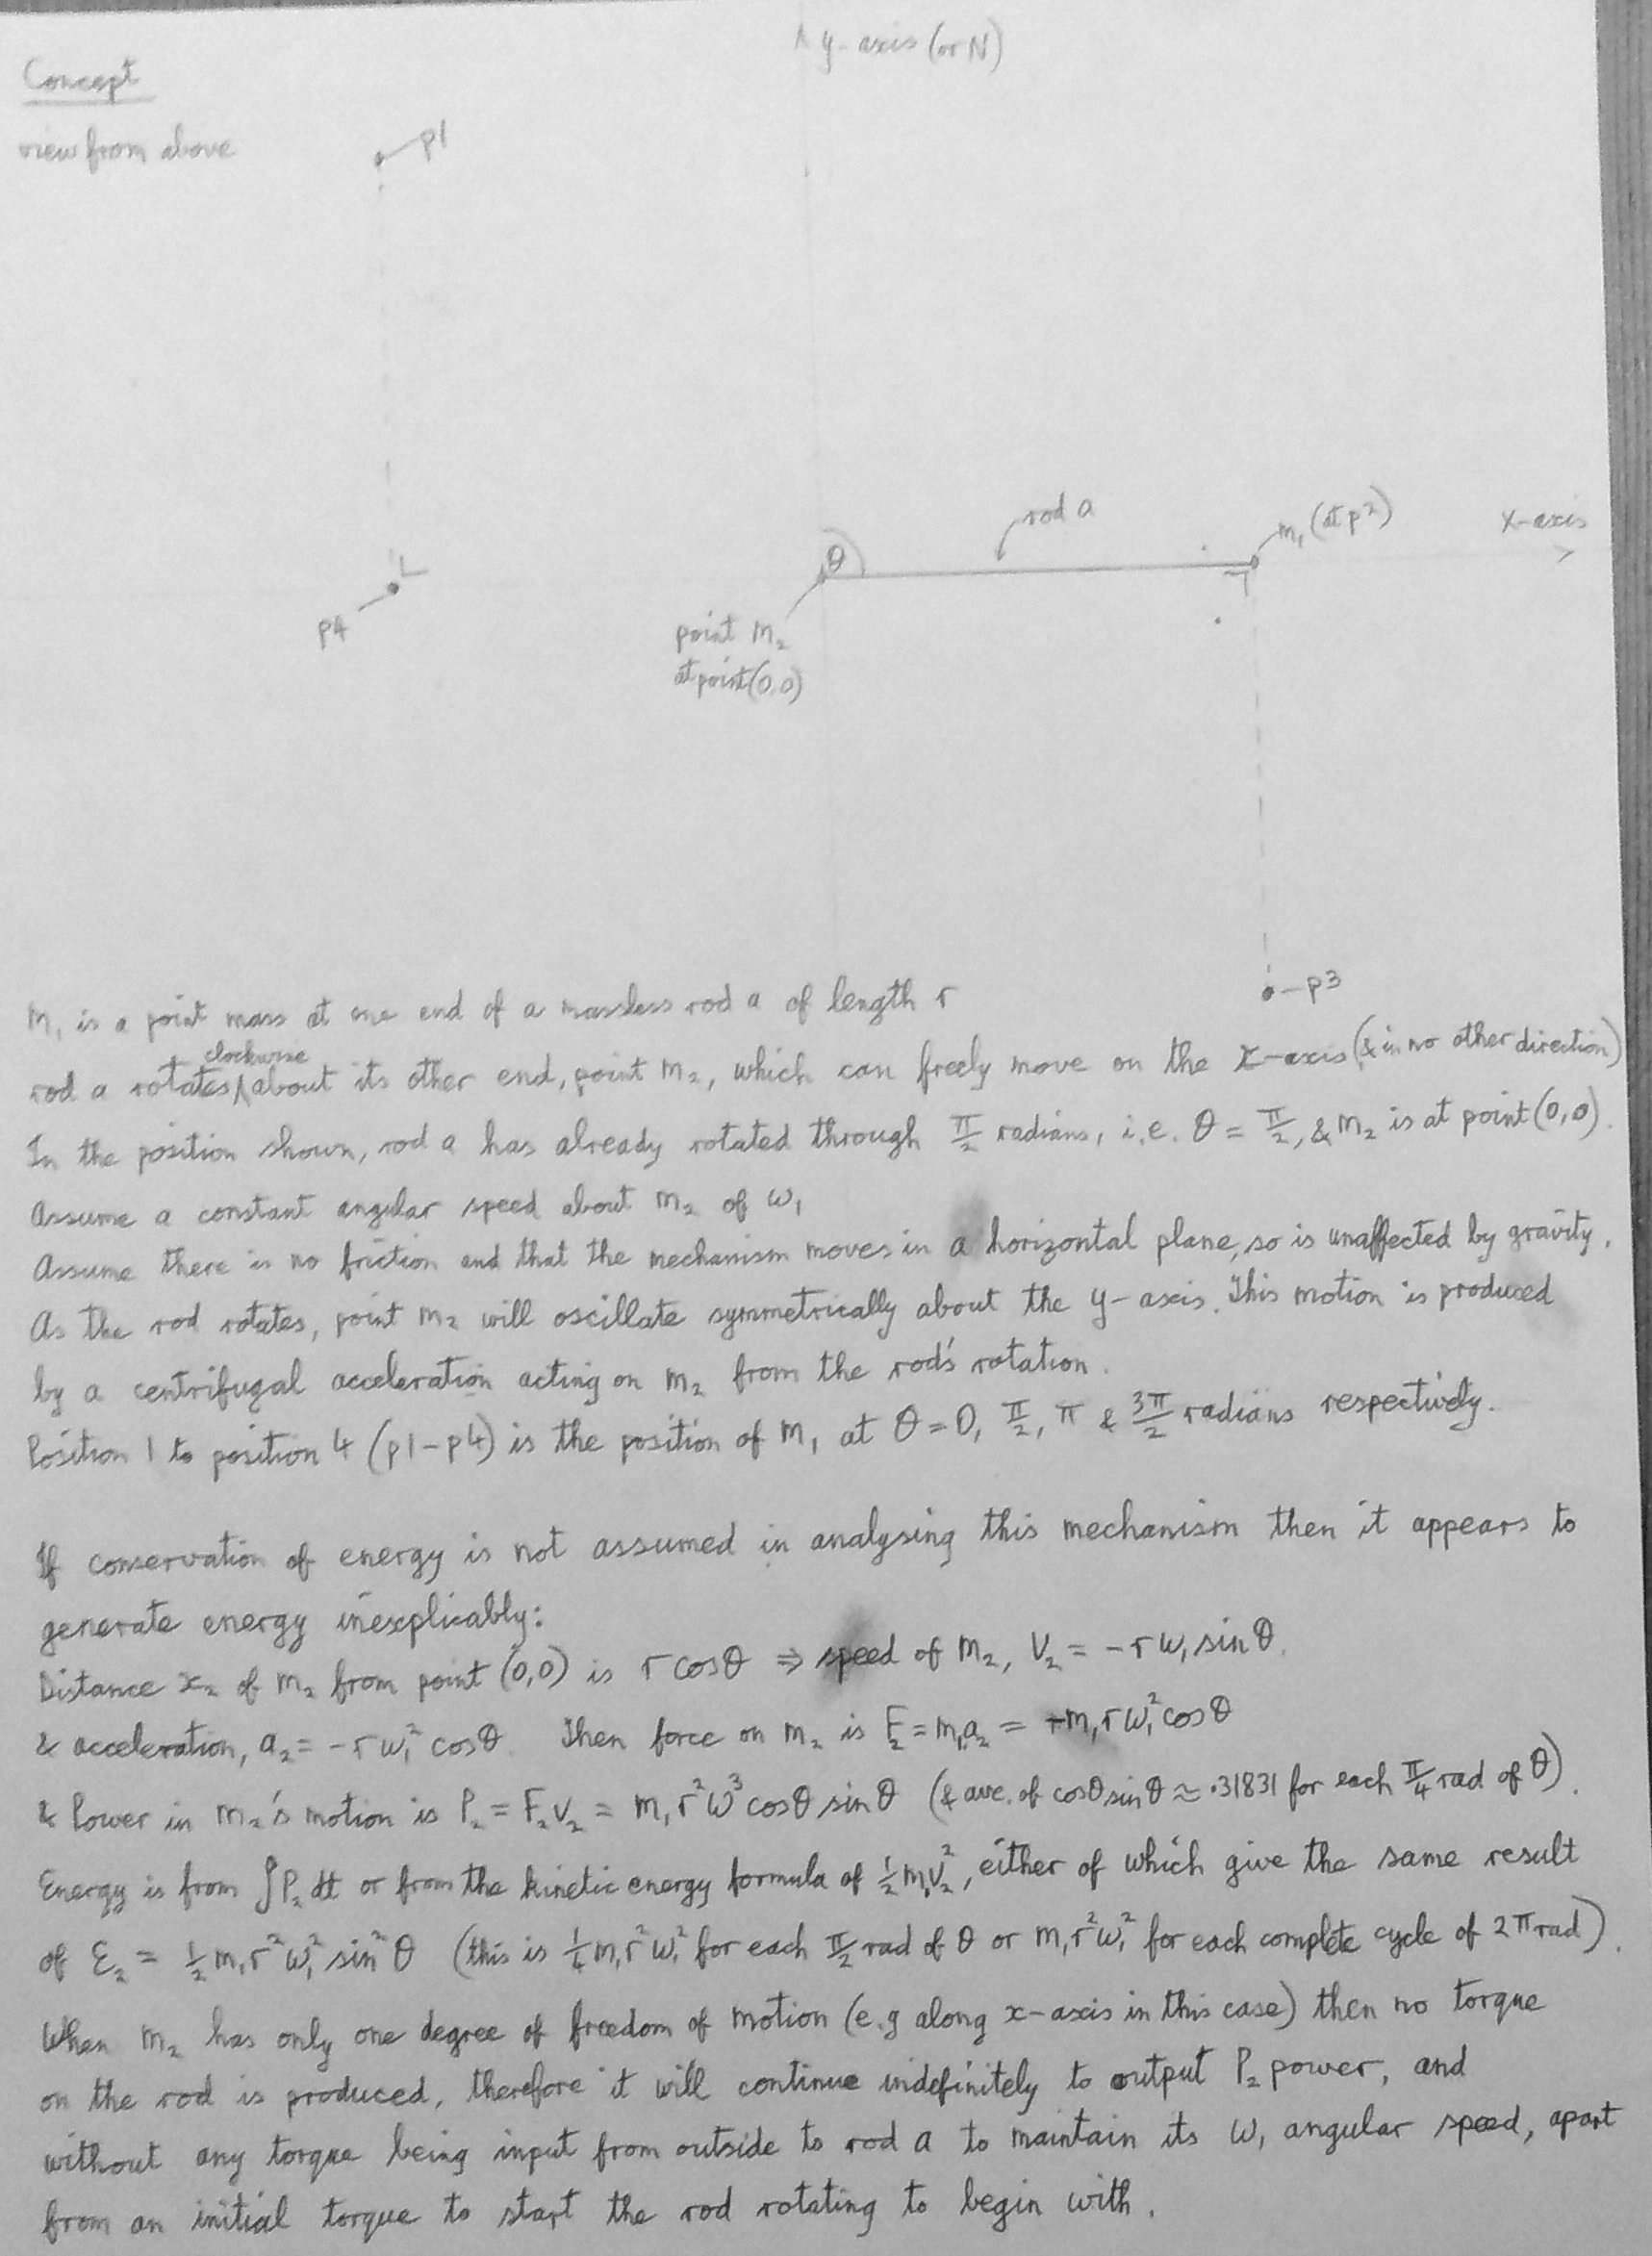 y-axis (or N)
Concept
view from above
p1
rod a
m₁ (at p2)
x-axis
θ
p4
point m₂
at point (0,0)
p3
m₁ is a point mass at one end of a massless rod a of length r
rod a rotates clockwise about its other end, point m₂, which can freely move on the x-axis (& in no other direction)
In the position shown, rod a has already rotated through π/2 radians, i.e. θ = π/2, & m₂ is at point (0,0).
Assume a constant angular speed about m₂ of ω₁
Assume there is no friction and that the mechanism moves in a horizontal plane, so is unaffected by gravity.
As the rod rotates, point m₂ will oscillate symmetrically about the y-axis. This motion is produced
by a centrifugal acceleration acting on m₂ from the rod's rotation.
Position 1 to position 4 (p1-p4) is the position of m₁ at θ = 0, π/2, π & 3π/2 radians respectively.
If conservation of energy is not assumed in analysing this mechanism then it appears to
generate energy inexplicably:
Distance x₂ of m₂ from point (0,0) is r cosθ ⇒ speed of m₂, V₂ = -rω₁ sinθ.
& acceleration, a₂ = -rω₁² cosθ. Then force on m₂ is F₂ = m₁a₂ = -m₁rω₁² cosθ
& Power in m₂'s motion is P₂ = F₂V₂ = m₁r²ω³ cosθ sinθ (& ave. of cosθ sinθ ≈ .31831 for each π/4 rad of θ).
Energy is from ∫P₂ dt or from the kinetic energy formula of ½m₁V₂², either of which give the same result
of Ɛ₂ = ½m₁r²ω₁² sin²θ (this is ¼m₁r²ω₁² for each π/2 rad of θ or m₁r²ω₁² for each complete cycle of 2π rad).
When m₂ has only one degree of freedom of motion (e.g along x-axis in this case) then no torque
on the rod is produced, therefore it will continue indefinitely to output P₂ power, and
without any torque being input from outside to rod a to maintain its ω₁ angular speed, apart
from an initial torque to start the rod rotating to begin with.